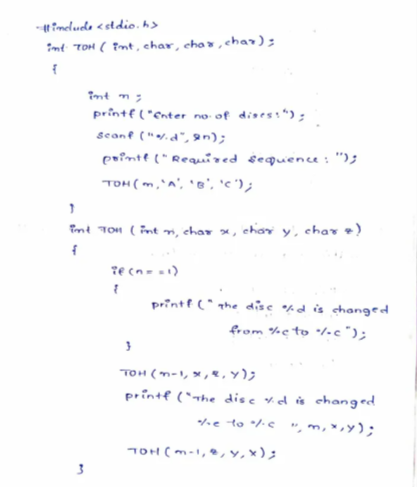 #include<stdio.h>
int TOH ( int, char, char, char);
{
int n;
printf ("Enter no. of discs:");
scanf ("%d", &n);
printf ("Required sequence : ");
TOH(n,'A', 'B', 'C');
}
int TOH ( int n, char x, char y, char z)
{
if (n==1)
{
printf (" The disc %d is changed
from %c to %c");
}
TOH (n-1, x, z, y);
printf ("The disc %d is changed
%c to %c ", n, x, y);
TOH (n-1, z, y, x);
}